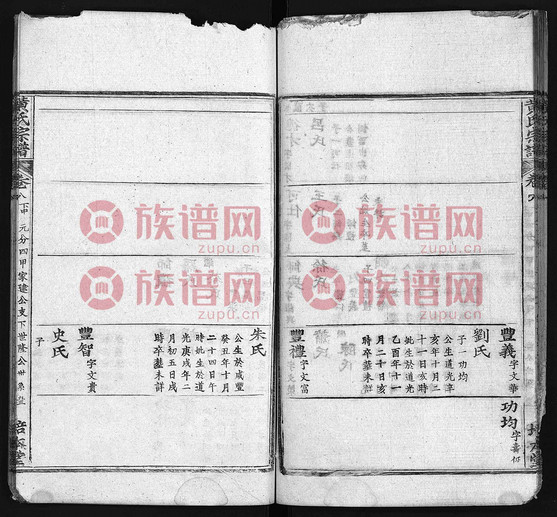 黄氏宗譜
豐義字文華
劉氏
子一功均
公生道光辛
亥年十月二
十一日亥時
妣生於道光
乙酉年十一
月二十日亥
時卒葬未詳
豐禮字文富
功均
朱氏
公生於咸豐
癸丑年十月
二十四日午
時妣生於道
光庚戌年二
月初五日戌
時卒葬未詳
豐智字文貴
史氏
子
黄氏宗譜
卷八
元分四甲家建公支下世隆公世系
族谱网
zupu.cn
族谱网
zupu.cn
族谱网
zupu.cn
族谱网
zupu.cn